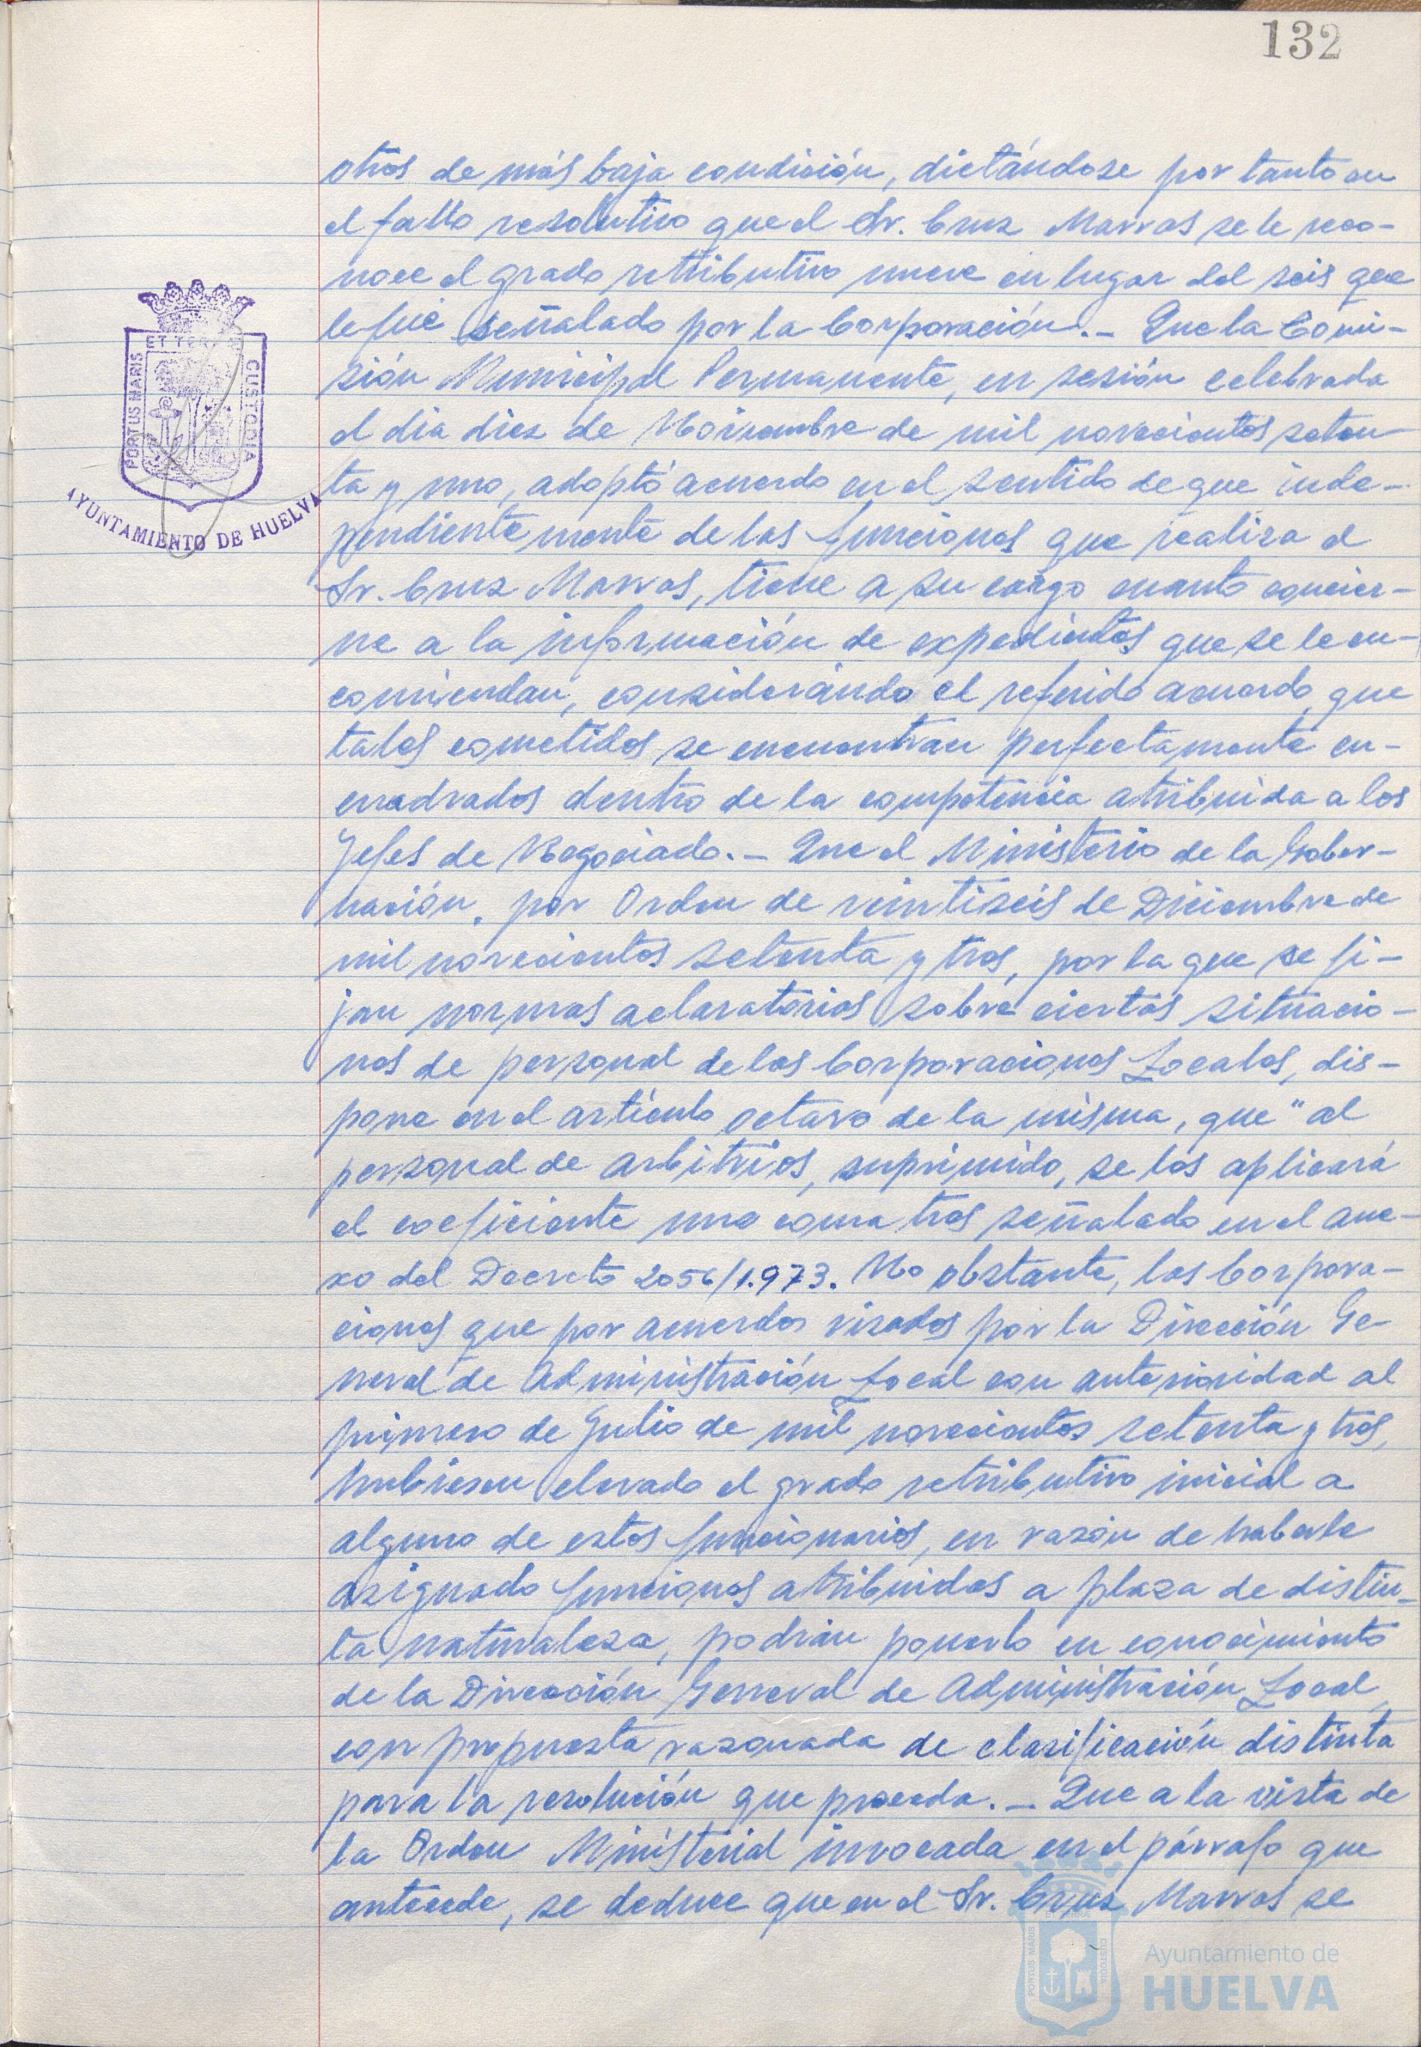 132
otros de más baja condición, dictándose por tanto en
el fallo resolutivo que el Sr. Cruz Marras se le reco-
noce el grado retributivo nueve en lugar del seis que
le fué señalado por la Corporación.- Que la Comi-
sión Municipal Permanente, en sesión celebrada
el dia diez de Noviembre de mil novecientos seten-
ta y uno, adoptó acuerdo en el sentido de que inde-
pendientemente de las funciones que realiza el
Sr. Cruz Marras, tiene a su cargo cuanto concier-
ne a la información de expedientes que se le en-
comiendan, considerando el referido acuerdo que
tales cometidos se encuentran perfectamente en-
cuadrados dentro de la competencia atribuida a los
Jefes de Negociado.- Que el Ministerio de la Gober-
nación, por Orden de veintiseis de Diciembre de
mil novecientos setenta y tres, por la que se fi-
jan normas aclaratorias sobre ciertas situacio-
nes de personal de las Corporaciones Locales, dis-
pone en el artículo octavo de la misma, que "al
personal de arbitrios, suprimido, se les aplicará
el coeficiente uno coma tres señalado en el ane-
xo del Decreto 2056/1.973. No obstante, las Corpora-
ciones que por acuerdos visados por la Dirección Ge-
neral de Administración Local con anterioridad al
primero de Julio de mil novecientos setenta y tres,
hubiesen elevado el grado retributivo inicial a
alguno de estos funcionarios, en razón de haberle
asignado funciones atribuidas a plaza de distin-
ta naturaleza, podrán ponerlo en conocimiento
de la Dirección General de Administración Local,
con propuesta razonada de clasificación distinta
para la resolución que proceda.- Que a la vista de
la Orden Ministerial invocada en el párrafo que
antecede, se deduce que en el Sr. Cruz Marras se
PORTUS MARIS
ET TERRAE
CUSTODIA
AYUNTAMIENTO DE HUELVA
Ayuntamiento de
HUELVA